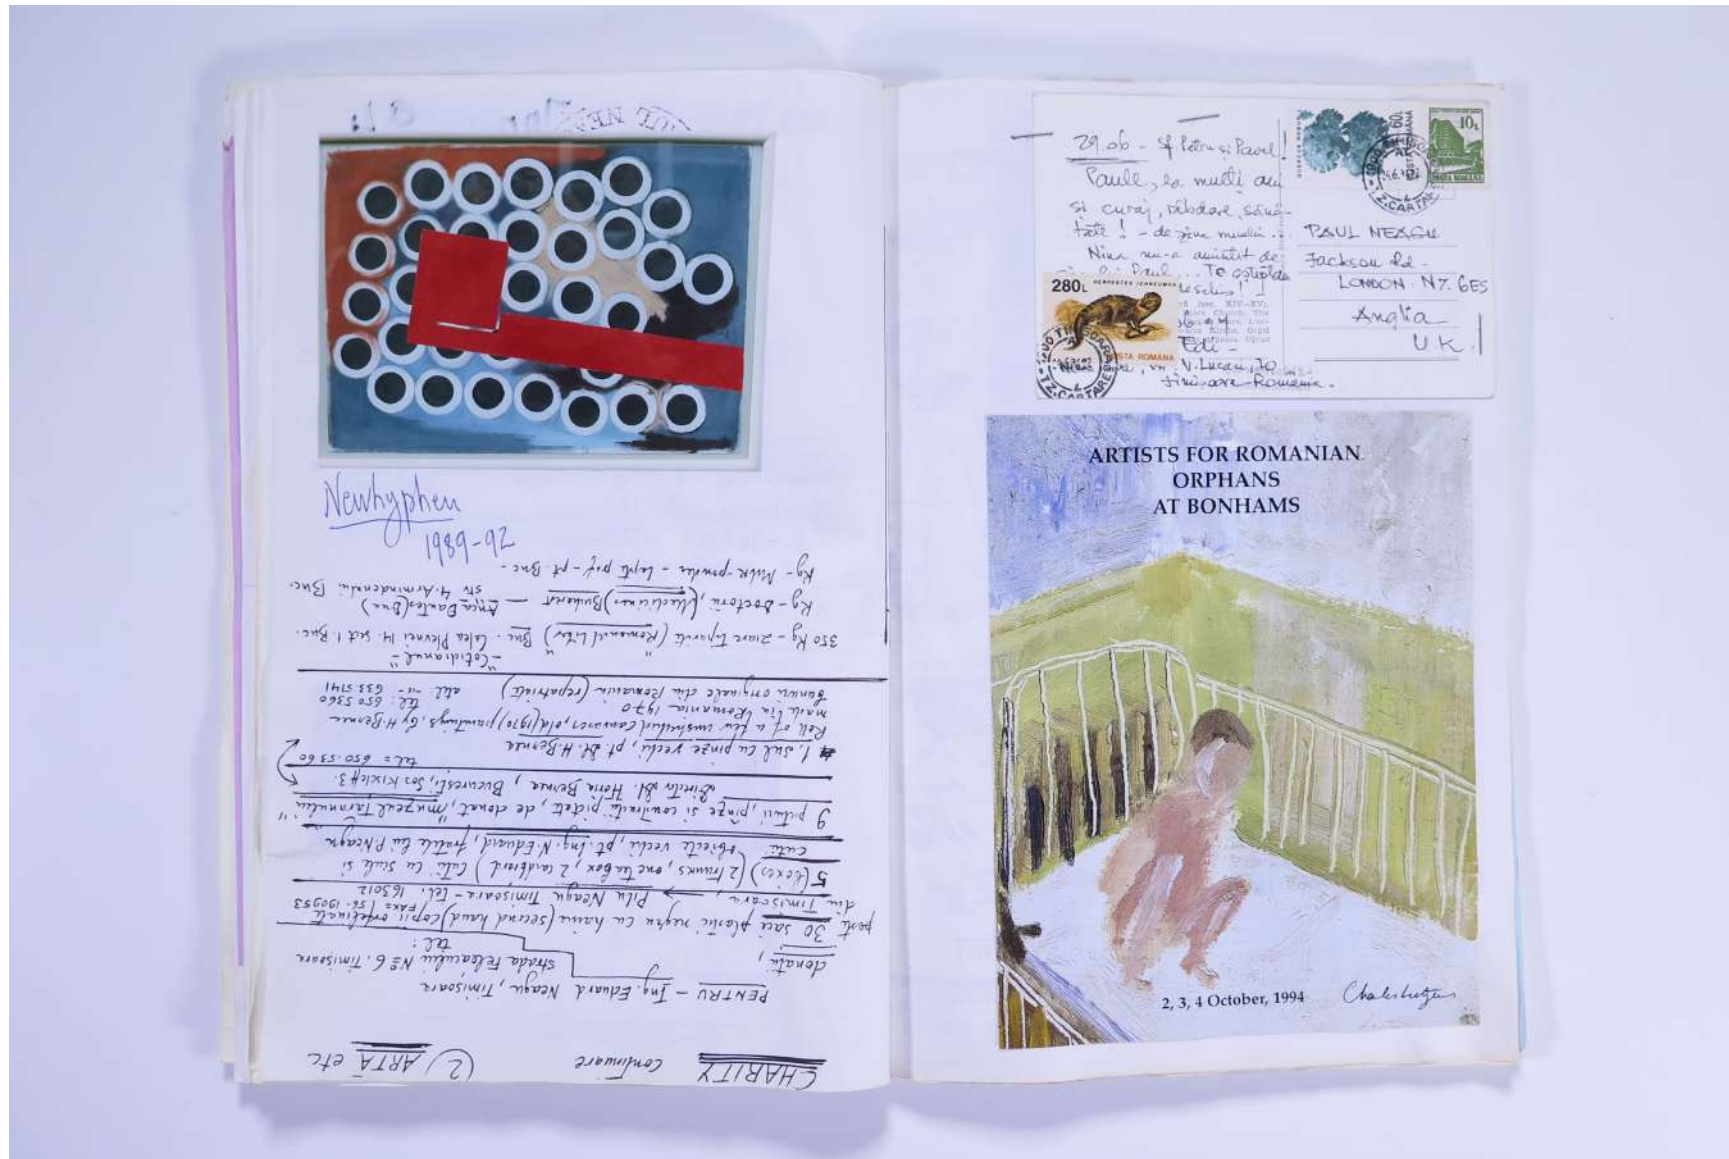 Newhyphen
1989-92
CHARITY continuare 2) ARTA etc
PENTRU - Ing. Eduard Neagu, Timisoara
strada Feleacului Nº 6. Timisoara
tel:
donatii,
30 saci plastic negru cu haine (second hand) copii orfelinate
din Timisoara, → Pilu Neagu Timisoara - tel. 163012
5 (boxes) (2 trunks, one tea box, 2 cardboard) cutii cu scule si
cutii obiecte vechi, pt. Ing. N. Eduard, fratele lui P. Neagu
9 picturi, pinze si constructii pictate, de donat, "muzeul Taranului"
Director Dl. Horia Bernea, Bucuresti, Sos Kiseleff 3.
tel = 650.53 60
1. sul cu pinze vechi, pt. Dl. H. Bernea
Roll of a few unstretched canvases, old (1970) paintings, by H. Bernea
made in Romania 1970 tel: 650 5360
bunuri originale din Romania (repatriate) atel -"- 633 5141
"Cotidianul"
350 Kg - ziare tiparite (Romanul liber) Buc. Calea Plevnei 14 sect 1. Buc.
Kg - Doctorii, (Medicines) Bucharest — Anca Dantes (Buc)
str 4. Armindenului Buc.
Kg - Milk-powder - lapte praf - pt. Buc -
29.06 - Sf. Petru si Pavel!
Paule, la multi ani
si curaj, răbdare, sănă-
tate! - de ziua numelui...
Nina mi-a amintit de
Paul... Te
Edi -
V. Lucaci, 70
Timisoara Romania.
60L
POSTA ROMANA
10L
POSTA ROMANA
280L HERPESTES ICHNEUMON
POSTA ROMANA
PAUL NEAGU
Jackson Rd -
LONDON N7. 6ES
Anglia
U.K.
ARTISTS FOR ROMANIAN
ORPHANS
AT BONHAMS
2, 3, 4 October, 1994